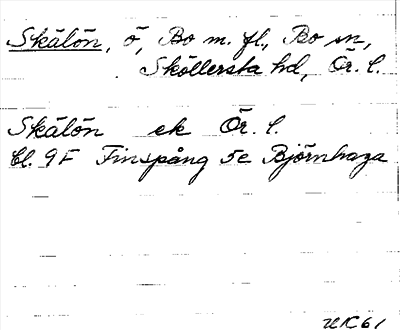 Skälön, ö, Bo m. fl., Bo sn,
Sköllersta hd, Ör. l.
Skälön ek Ör. l.
Bl. 9F Finspång 5e Björnhaga